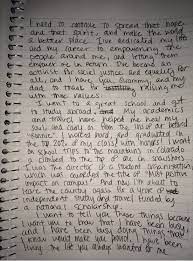 I need to continue to spread that hope
and that spirit, and make the world
a better place. I've dedicated my life
and my career to empowering the
people around me, and letting them
empower me in return. I've become an
activist for social justice and equality for
all, and I have you, Grammy, and my
Dad to thank for raising me
with those values.
I went to a great school and got
to study abroad a time. My academics
and travels have helped me heal my
soul and
I worked hard and graduated in
the top 20% of my class with honors! I went
on ski trips in the mountains in colorado
I climbed to the top of in
I was the director of a student organization
which was awarded the title of "Most positive
impact on campus". And now I'm about to
leave the country again for a year of
independent study and travel funded by
a national scholarship.
I want to tell you these things because
I want you to know that I have been busy
and I have been busy doing things I
know would make you proud. I have been
living the life you always wanted for me